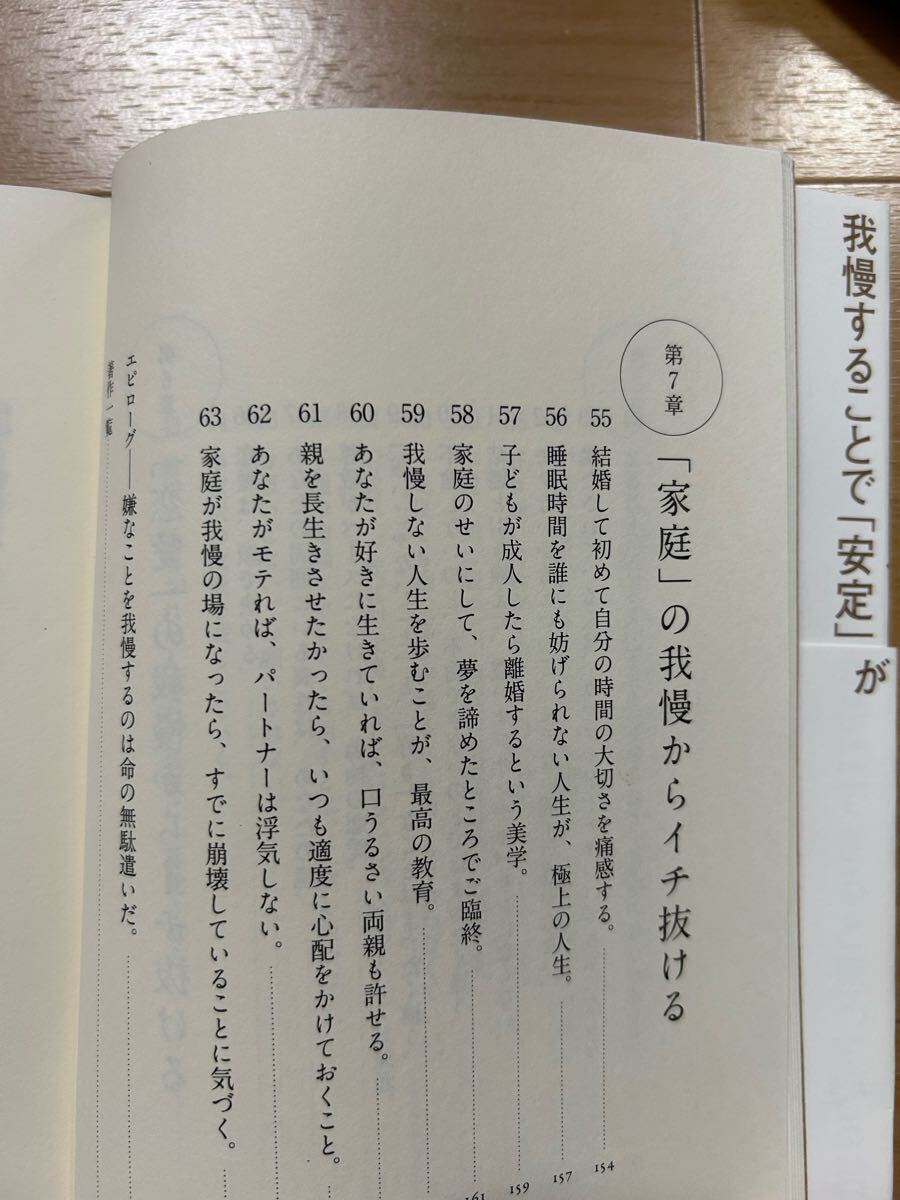 第7章
「家庭」の我慢からイチ抜ける
55 結婚して初めて自分の時間の大切さを痛感する。 154
56 睡眠時間を誰にも妨げられない人生が、極上の人生。 157
57 子どもが成人したら離婚するという美学。 159
58 家庭のせいにして、夢を諦めたところでご臨終。 161
59 我慢しない人生を歩むことが、最高の教育。
60 あなたが好きに生きていれば、口うるさい両親も許せる。
61 親を長生きさせたかったら、いつも適度に心配をかけておくこと。
62 あなたがモテれば、パートナーは浮気しない。
63 家庭が我慢の場になったら、すでに崩壊していることに気づく。
エピローグ――嫌なことを我慢するのは命の無駄遣いだ。
著作一覧
我慢することで「安定」が